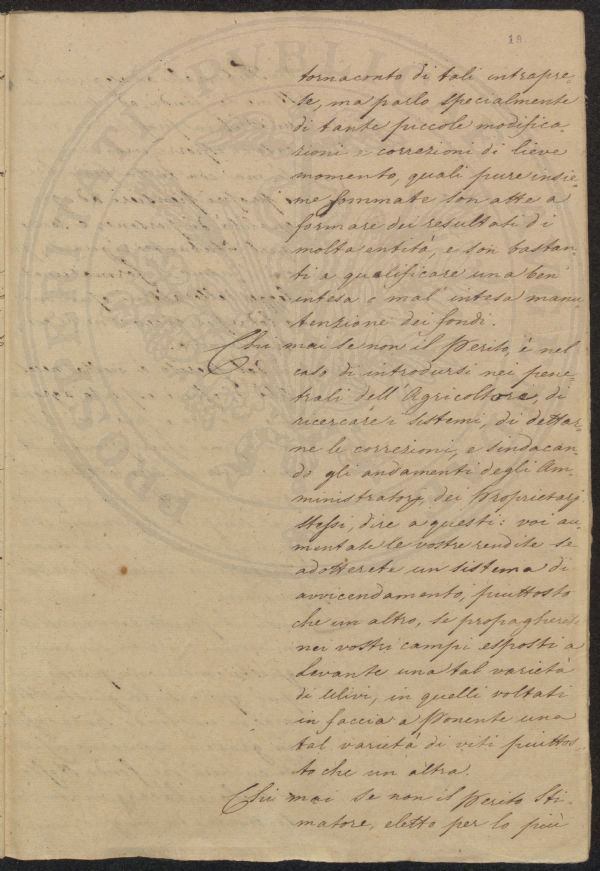 19
tornaconto di tali intrapre-
se, ma parlo specialmente
di tante piccole modifica-
zioni e correzioni di lieve
momento, quali pure insie-
me sommate son atte a
formare dei resultati di
molta entità, e son bastan-
ti a qualificare una ben'
intesa o mal' intesa manu-
tenzione dei fondi.
Chi mai se non il Perito, è nel
caso di introdursi nei pene-
trali dell'Agricoltore, di
ricercare i sistemi, di dettar-
ne le correzioni, e sindacan-
do gli andamenti degli Am-
ministratori, dei Proprietarj
stessi, dire a questi: voi au-
mentate le vostre rendite se
adotterete un sistema di
avvicendamento, piuttosto
che un altro, se propagherete
nei vostri campi esposti a
Levante una tal varietà
di Ulivi, in quelli voltati
in faccia a Ponente una
tal varietà di viti piuttos-
to che un altra.
Chi mai se non il Perito Sti-
matore, eletto per lo più
PROSPERITATI PUBLICAE